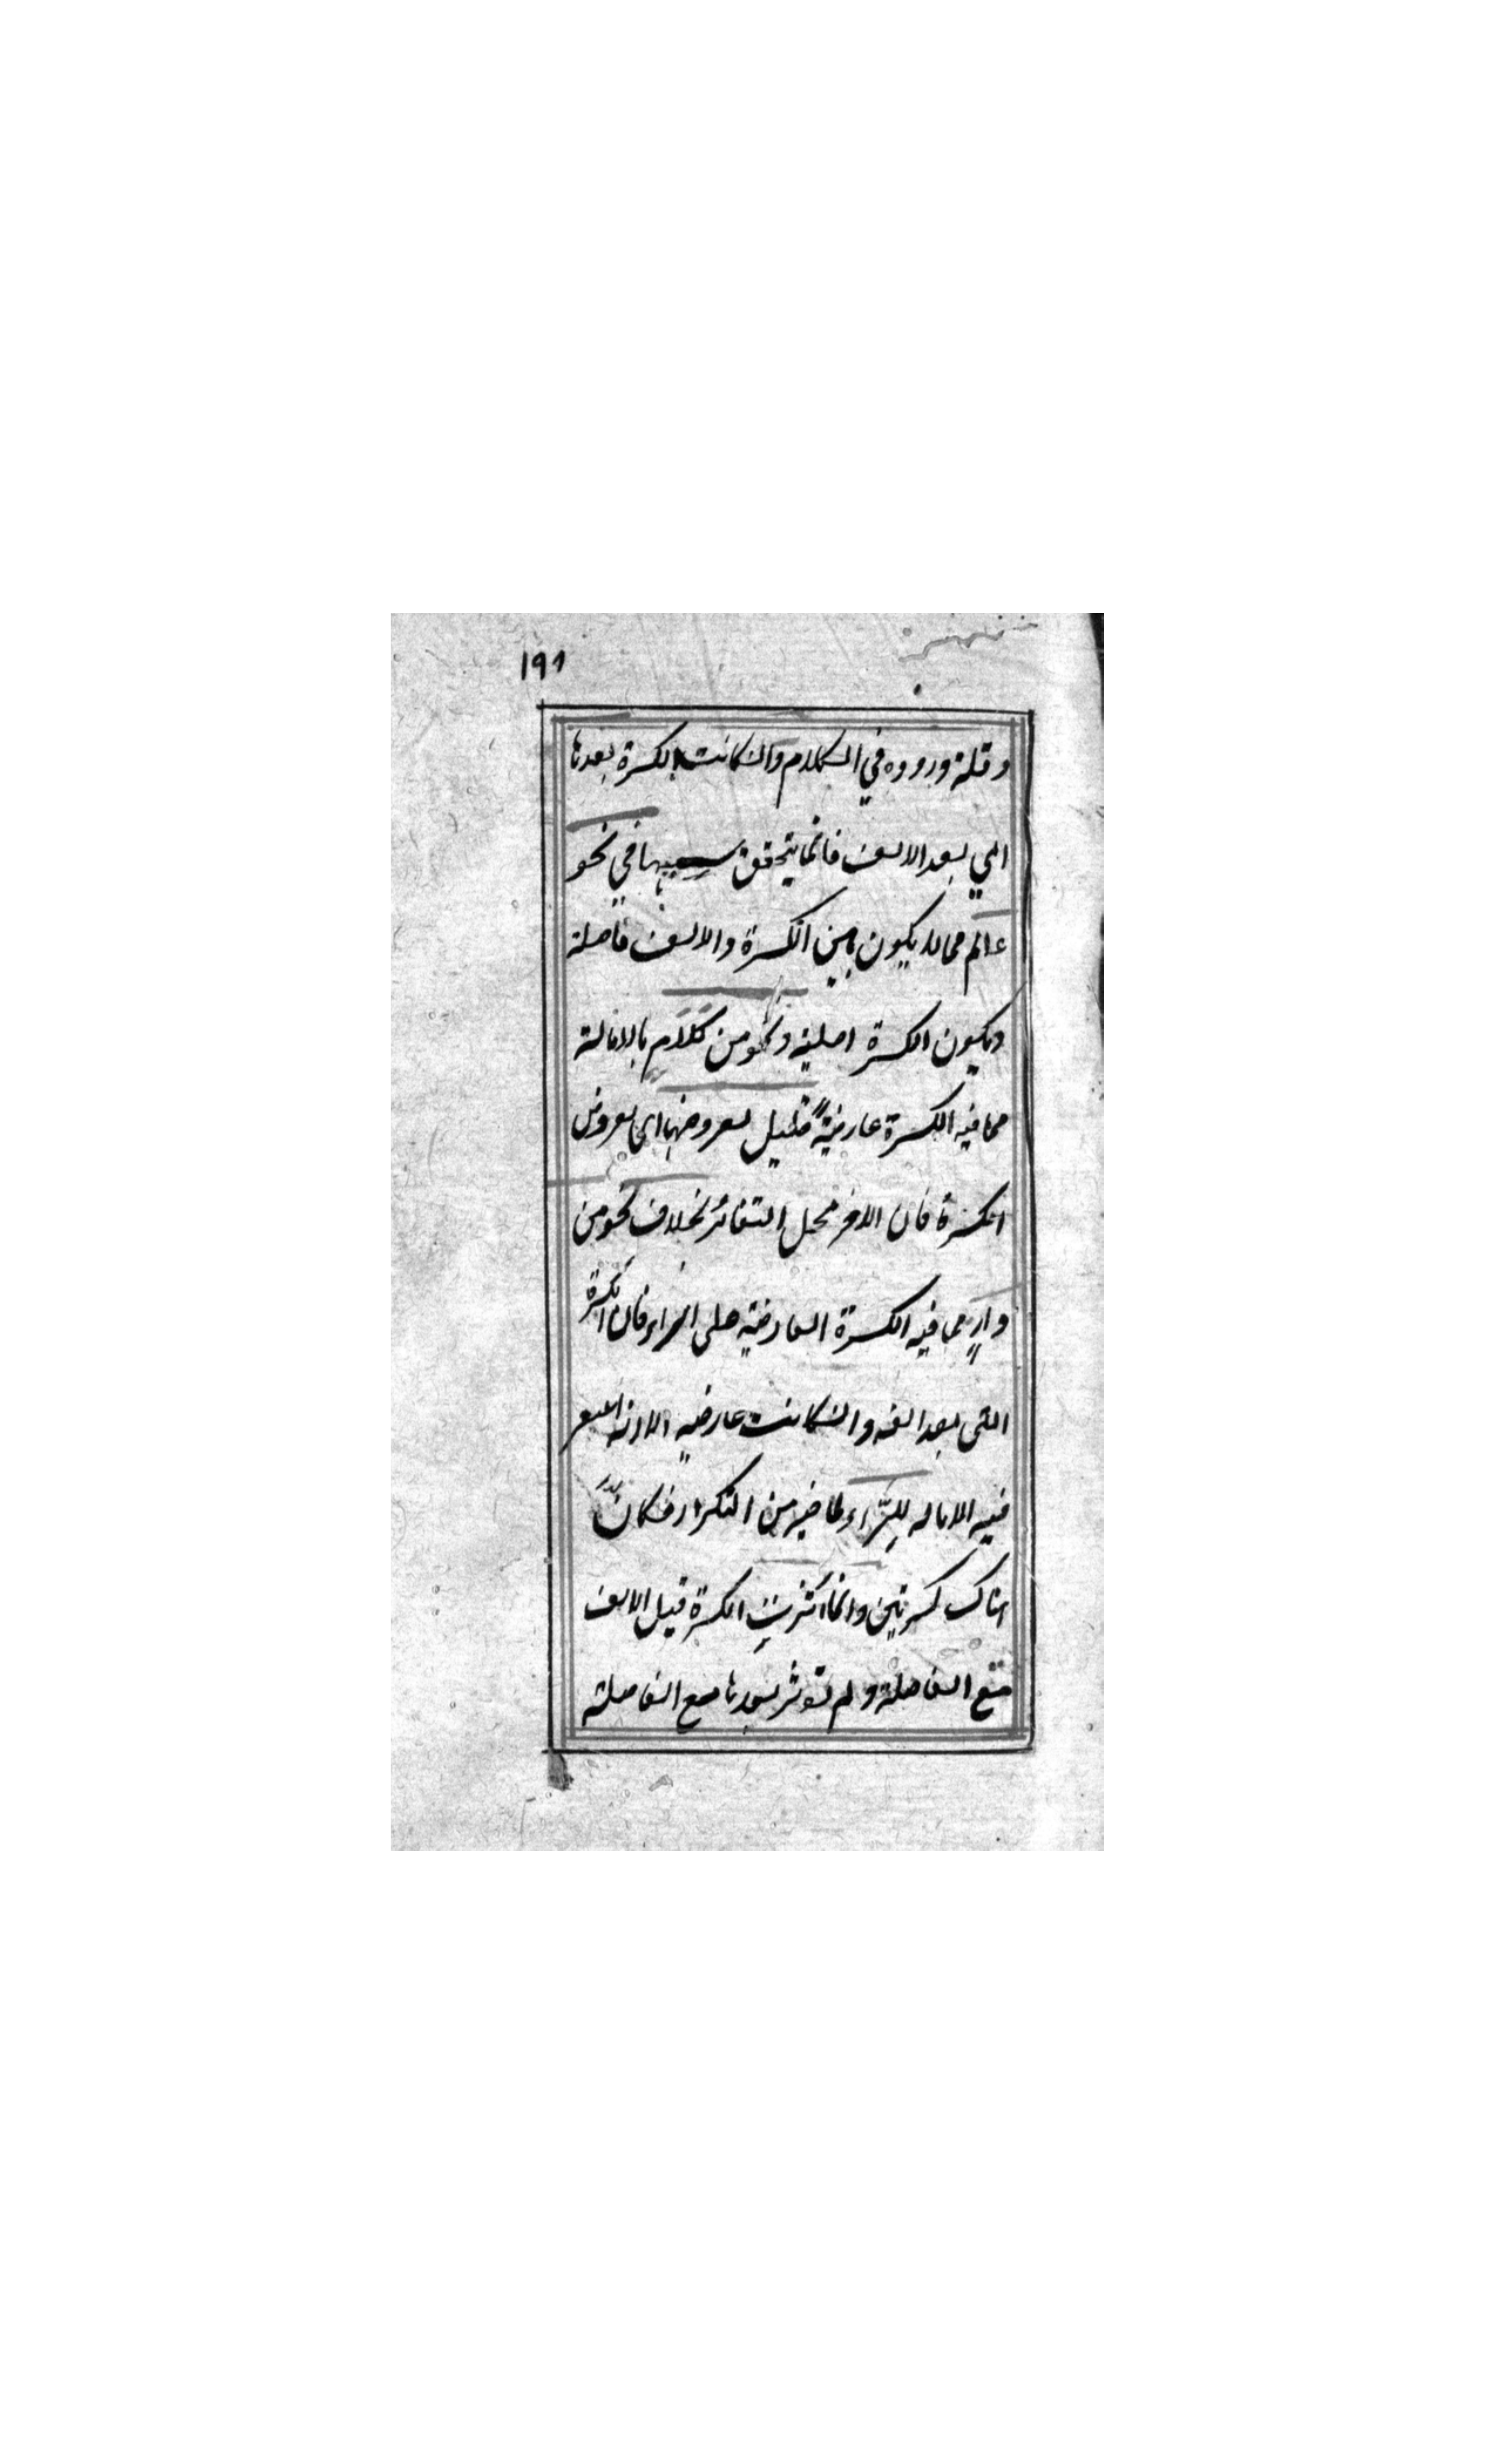 ١٩١
وقلة وروده في الكلام وان كانت الكسرة بعدها
اي بعد الالف فانما يتحقق سببيتها في نحو
عالم مما لا يكون بين الكسرة والالف فاصلة
ويكون الكسرة اصلية ونحو من كلام بالامالة
مما فيه الكسرة عارضية قليل لعروضها اي لعروض
الكسرة فان الاخر محل التغائر بخلاف نحو من
دار مما فيه الكسرة العارضية على الراء فان الكسرة
التي بعد الفه وان كانت عارضيه الا انه
فيه الاماله للراء لما فيه من التكرار فكان
هناك كسرتين وانما اثرت الكسرة قبل الالف
مع الفاصلة ولم تؤثر بعدها مع الفاصلة